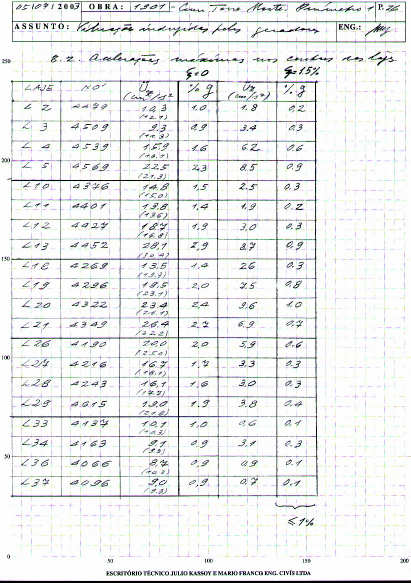 05/09/2003 OBRA: 1901 - Torre Norte. Perímetro 1 P. 26
ASSUNTO: Vibrações induzidas pelos geradores ENG.:
8.2. Acelerações máximas nos centros das lajes
ξ=0 ξ=1.5%
LAJE NO' Ü (cm/s²) % g Ü (cm/s²) % g
L 2 4479 10,3 1.0 1.8 0.2
L 3 4509 9.3 0.9 3.4 0.3
L 4 4539 15.9 1.6 6.2 0.6
L 5 4569 22.5 2.3 8.5 0.9
(21.3)
L10 4376 14.8 1.5 2.5 0.3
(15.0)
L11 4401 13.8 1,4 1.9 0.2
(13.6)
L12 4427 18.7 1.9 3.0 0.3
(16.8)
L13 4452 28,1 2,9 8.7 0.9
(30.4)
L18 4269 13.5 1,4 2.6 0.3
L19 4296 19.5 2.0 7.5 0.8
(23.1)
L20 4322 23.4 2.4 9.6 1.0
(21.1)
L21 4349 26.4 2.7 6.9 0.7
(22.2)
L26 4190 20.0 2.0 5.9 0.6
(25.0)
L27 4216 16.7 1.7 3.3 0.3
(18.1)
L28 4243 16,1 1,6 3.0 0.3
(17.7)
L29 4615 19.0 1.9 3,8 0.4
(21.8)
L33 4137 10,1 1.0 0.6 0.1
(10.3)
L34 4163 9,1 0,9 3,1 0.3
L36 4066 8,7 0,9 0,9 0.1
L37 4096 9.0 0,9 0.7 0.1
≤ 1%
250
200
150
100
50
0
50 100 150 200
ESCRITÓRIO TÉCNICO JULIO KASSOY E MARIO FRANCO ENG. CIVÍS LTDA